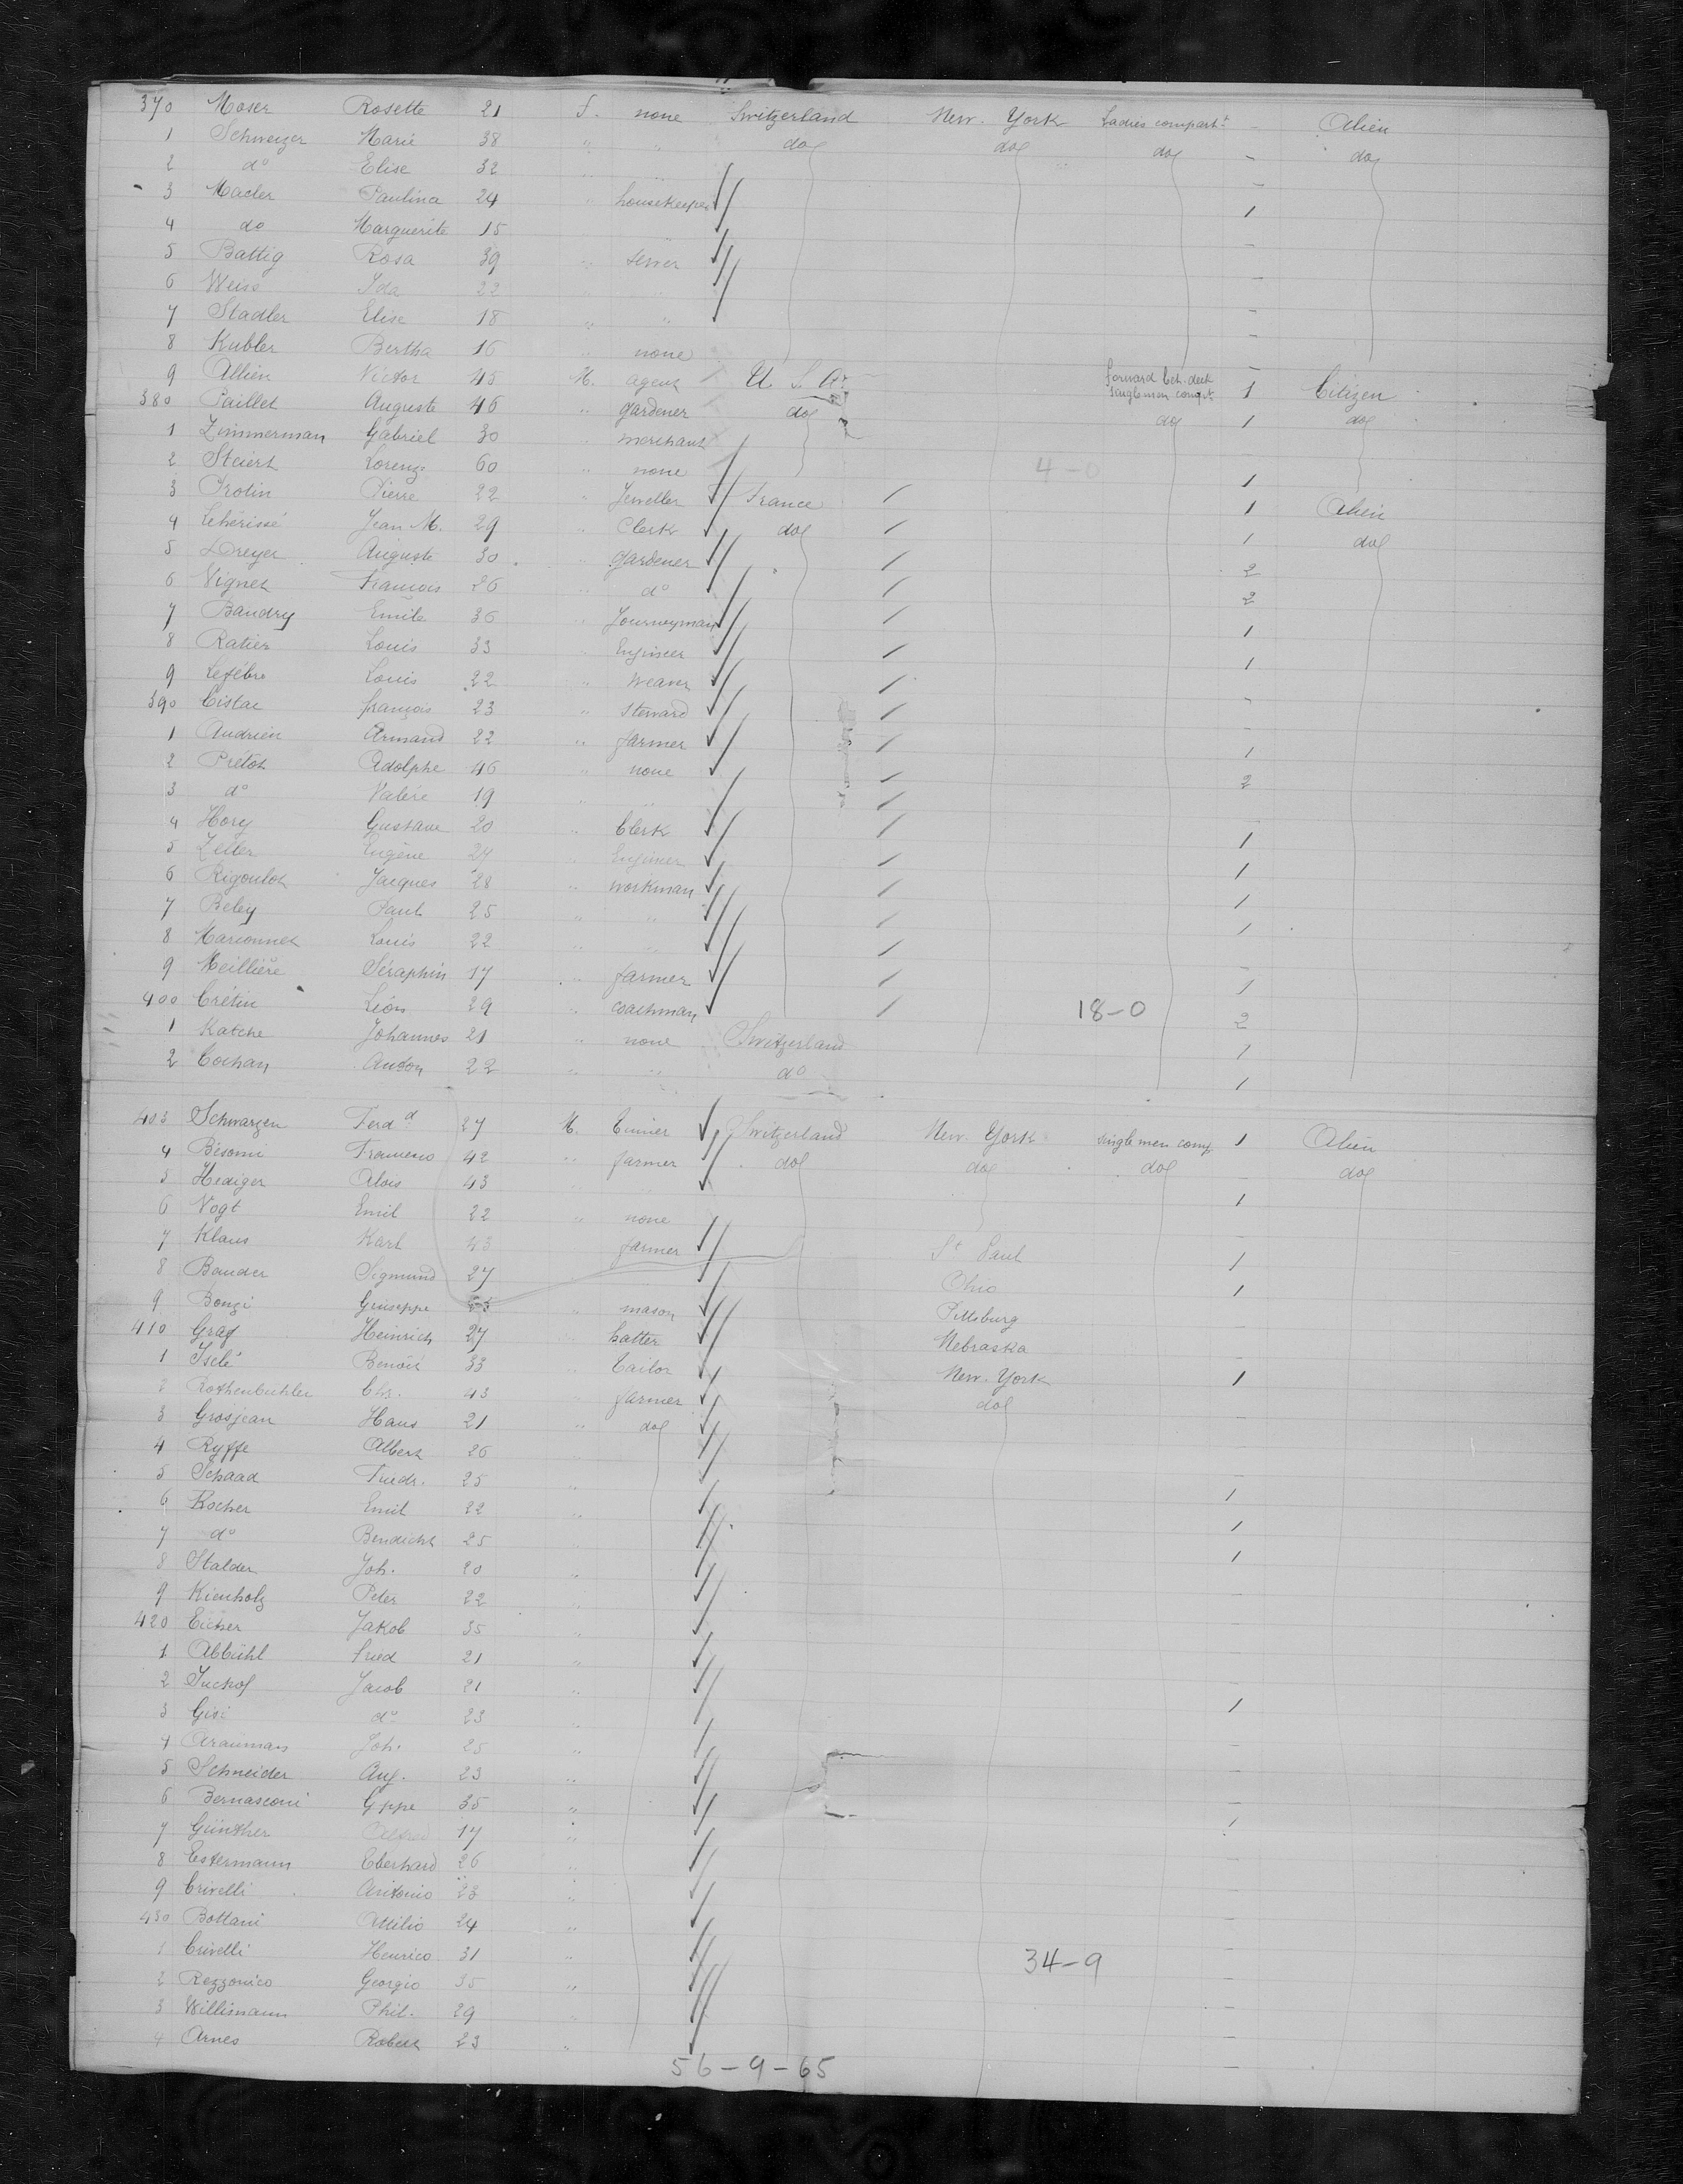 370 Moser Rosette 21 f. none Switzerland New-York Ladies compart.t - Alien
1 Schweizer Marie 38 " " do do do - do
2 do Elise 32 " " -
3 Macler Paulina 24 " housekeeper 1
4 do Marguerite 15 -
5 Battig Rosa 39 " sewer -
6 Weiss Ida 22 -
7 Stadler Elise 18 " " -
8 Kubler Bertha 16 " none -
9 Allien Victor 45 M. agent U. S. A. forward bet. deck singlemen compt. 1 Citizen
380 Paillet Auguste 46 " gardener do do 1 do
1 Zimmerman Gabriel 30 " merchant -
2 Steiert Lorenz 60 " none 4-0 1
3 Protin Pierre 22 " Jeweller France 1 Alien
4 Lehérissé Jean M. 29 " Clerk do 1 do
5 Dreyer Auguste 30 " gardener 2
6 Vignet François 26 " do 2
7 Baudry Emile 36 " Journeyman 1
8 Ratier Louis 33 " Engineer 1
9 Lefébre Louis 22 " weaver -
390 Cistac françois 23 " steward -
1 Audrien Armand 22 " farmer 1
2 Prétot Adolphe 46 " none 2
3 do Valére 19 " "
4 Hory Gustave 20 " Clerk 1
5 Zeller Eugène 24 " Engineer 1
6 Rigoulot Jacques 28 " workman 1
7 Beley Paul 25 " " 1
8 Marionnet Louis 22 " " -
9 Meillière Séraphin 17 " farmer 1
400 Crétin Léon 29 " coachman 18-0 2
1 Katche Johannes 21 " none Switzerland 1
2 Cochan Anton 22 " " do 1
403 Schwarzen Ferd.d 27 M. Switzerland New-York single men comp. 1 Alien
4 Bisomi 42 " farmer do do do - do
5 Hediger Alois 43 1
6 Vogt Emil 22 " none -
7 Klaus Karl 43 farmer St Paul 1
8 Bauder Sigmund 27 Ohio 1
9 Bonzi Giuseppe " mason Pittsburg -
410 Graf Heinrich 27 hatter Nebraska -
1 Iselé Benoît 33 tailor New-York 1
2 Rothenbuhler Chr. 43 farmer do -
3 Grosjean Hans 21 " do
4 Ryffe Albert 26 -
5 Schaad Friedr. 25 " 1
6 Kocher Emil 22 " 1
7 do Bendicht 25 1
8 Stalder Joh. 20 " -
9 Kienholz Peter 22 -
420 Eicher Jakob 35 " -
1 Abbühl Fried 21 " -
2 Jacob 21 " 1
3 Gisi do 23 " -
4 Joh. 25 " -
5 Schneider Aug. 23 " -
6 Bernasconi Gppe 35 " 1
7 Günther Alfred 17 " -
8 Estermann Eberhard 26 " -
9 Crivelli Antonio 23 " -
430 Bottani Attilio 24 " -
1 Crivelli Henrico 31 " 34-9 -
2 Rezzonico Georgio 35 " -
3 Willimann Phil. 29 " -
4 Arnes Robert 23 " -
56-9-65